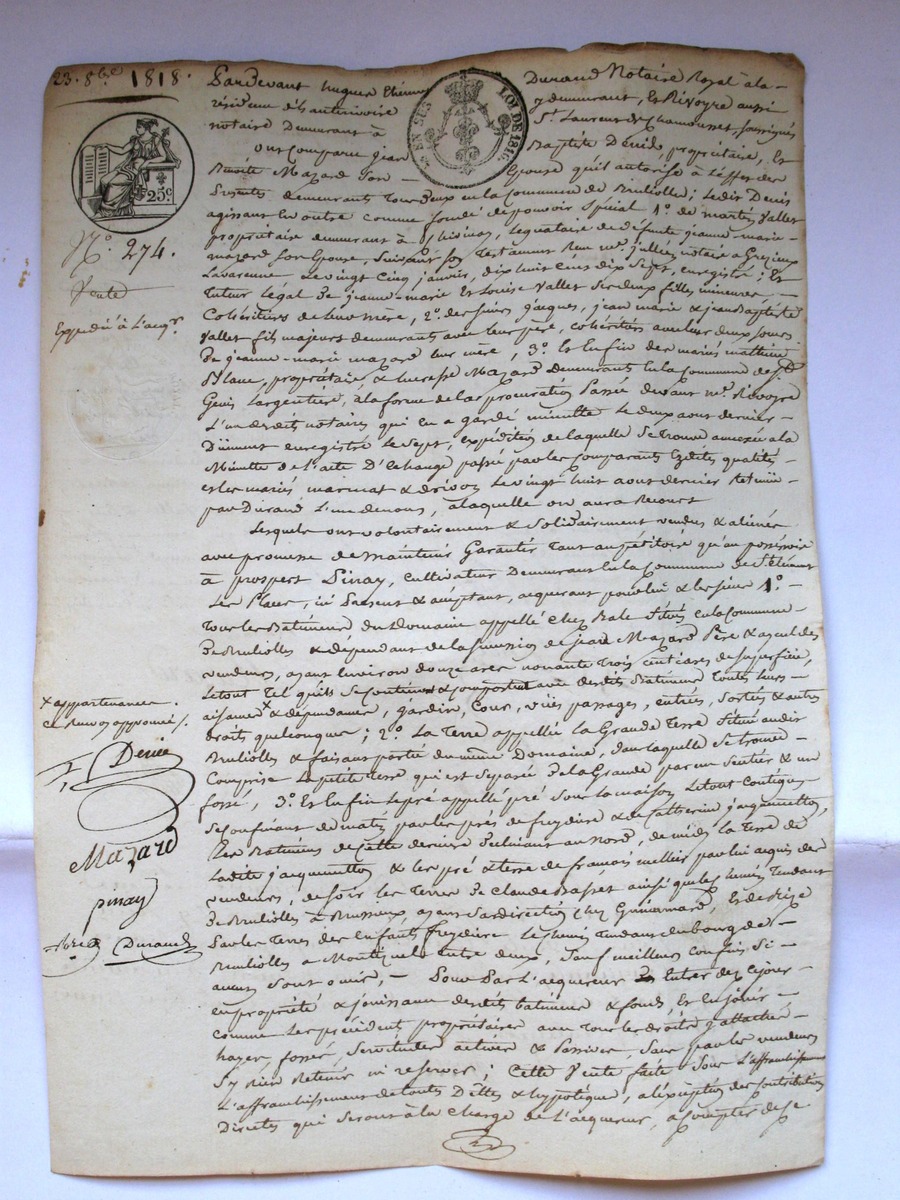 23. 8bre 1818.
25c.
EN SUS LOI DE 1816.
No. 274.
Vente
Expédié à l'acqr.
Pardevant hugues Etienne Durand Notaire Royal à la
résidence d'hauterivoire y demeurant, Et Rivoyre aussi
notaire Demeurant à St. Laurent de Chamousset, soussignés
ont Comparu jean Baptiste Denis, propriétaire, Et
Benoite Mazard son Epouse qu'il autorise à l'effet des
présentes demeurants tous deux en la Commune de Brulliolle; ledit Denis
agissant En outre comme fondé de pouvoir Spécial 1o. de martin Vallet
propriétaire demeurant à légataire de défunte jeanne-marie
mazard son Epouse, Suivant son Testament Reçu me. jullien notaire à Grezieux
Lavarenne le vingt Cinq janvier, dix huit cent dix Sept, enregistré; Et
Tuteur légal De jeanne-marie Et Louise Vallet Ses deux filles mineures
Cohéritières de leur mère, 2o. des sieurs jacques, jean marie & jean Baptiste
Vallet fils majeurs demeurants avec leur père, cohéritiers avec leurs deux soeurs
De jeanne-marie mazard leur mère, 3o. Et Enfin des mariés mathieu
Blanc, propriétaire, & lucresse Mazard demeurants En la commune de St.
Genis L'argentière, à la forme de la procuration Passée devant me. Rivoyre
L'un desdits notaires qui en a gardé minutte le deux aout dernier
Dûment enregistrée le Sept, expédition de laquelle Se trouve annexée à la
Minutte de l'acte D'Echange passé par les comparants Esdites qualités
et les mariés marmat & drivon le vingt huit aout dernier Retenu
par Durand L'un de nous, à laquelle on aura Recours
Lesquels ont volontairement & Solidairement vendus & aliénés
avec promesse de Maintenir Garantir Tant au pétitoire qu'au possessoire
à prospert Pinay, cultivateur Demeurant En la Commune de St. Clément
Les Places, ici présent & acceptant, acquérant pour lui & les siens 1o.
Tous les Batiments du Domaine appellé Chez Bale Situés en la Commune
De Brulliolles & dépendant de la Succession de jean Mazard Père & ayeul des
vendeurs, ayant environ douze ares nonante Trois centiares de Superficie,
Le tout Tel qu'ils Se contient & comportent avec desdits Batiments Toutes leurs
aisances x & dépendances, jardins, Cour, vües passages, entrées, Sorties & autres
droits quelconques; 2o. La Terre appellée la Grande Terre Située audit
Brulliolles & faisant partie du même Domaine, Dans laquelle Se trouve
Comprise la petite terre qui est Séparée De la Grande par un Sentier & un
fossé, 3o. Et Enfin le pré appellé pré Sous la maison Le tout Contigu
Se confinant de matin par les prés de freydière & de Catherine jacquemetton,
Les Batimens de Cette dernière Inclinant au Nord, de midi la Terre de
Ladite jacquemetton & les pré & terre de françois mellier par lui acquis des
vendeurs, de Soir les Terres De Claude Basset ainsi que le chemin Tendant
De Brulliolles à Brussieux, ayant Sa direction Chez Guinamard, Et de Bize
Par les Terres des Enfants freydière le chemin Tendant du bourg de
Brulliolles à Montjoul entre deux, Sauf meilleurs confins Si
aucuns Sont omis; Pour Par L'acquereur Entrer dez ce jour
en propriété & jouissance desdits batiment & fonds, Et En jouir
comme Les précédents propriétaires avec Tous les droits y attachés
hayes, fossés, Servitudes actives & Passives, Sans par les vendeurs
S'y Rien Retenir ni réserver; Cette Vente faite Sous L'affranchissement
L'affranchissement de toutes Dettes & hypotèques, à l'exception des Contributions
Directes qui Seront à la Charge de L'acquereur, à compter de ce
x appartenances.
ce renvoi approuvé /.
Denis
Mazard
pinay
Durand